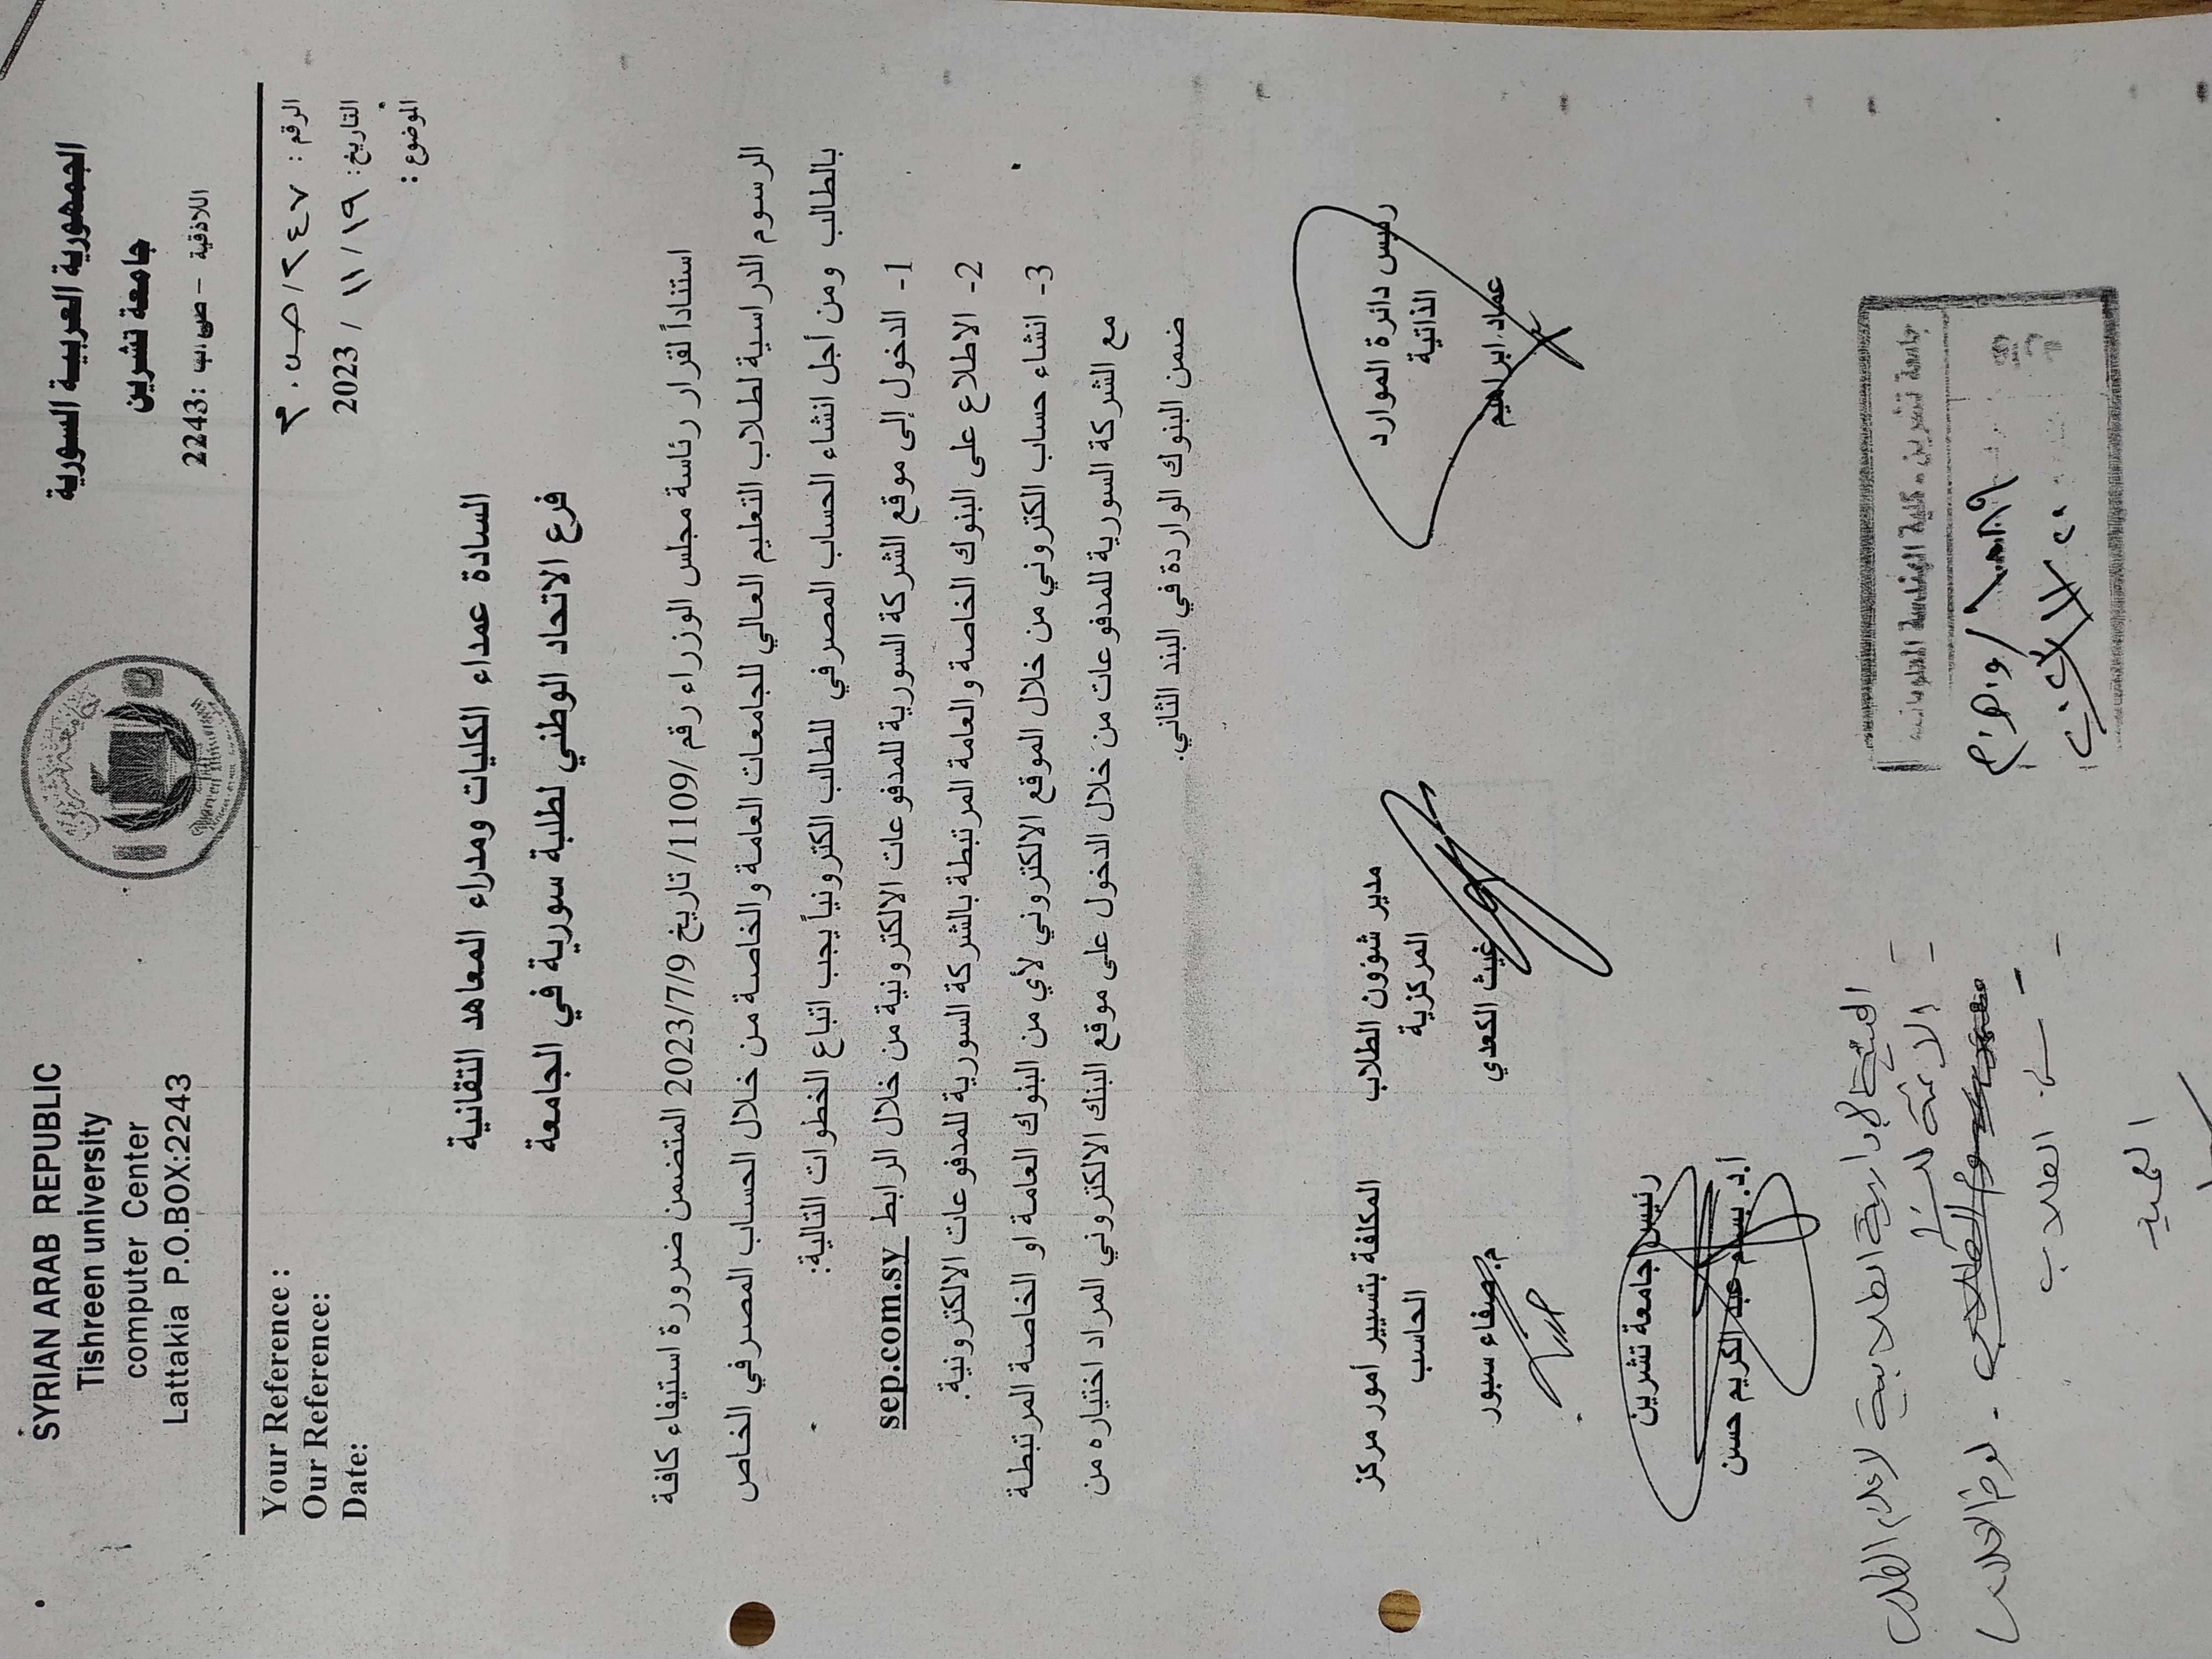 الجمهورية العربية السورية
جامعة تشرين
اللاذقية - ص.ب: 2243
SYRIAN ARAB REPUBLIC
Tishreen university
computer Center
Lattakia P.O.BOX:2243
الرقم : ٢٤٧/ص.م
التاريخ: ١٩/ ١١ / 2023
الموضوع :
Your Reference :
Our Reference:
Date:
السادة عمداء الكليات ومدراء المعاهد التقانية
فرع الاتحاد الوطني لطلبة سورية في الجامعة
استناداً لقرار رئاسة مجلس الوزراء رقم /1109/ تاريخ 2023/7/9 المتضمن ضرورة استيفاء كافة
الرسوم الدراسية لطلاب التعليم العالي للجامعات العامة والخاصة من خلال الحساب المصرفي الخاص
بالطالب ومن أجل انشاء الحساب المصرفي للطالب الكترونياً يجب اتباع الخطوات التالية:
1- الدخول إلى موقع الشركة السورية للمدفوعات الالكترونية من خلال الرابط sep.com.sy
2- الاطلاع على البنوك الخاصة والعامة المرتبطة بالشركة السورية للمدفوعات الالكترونية.
3- انشاء حساب الكتروني من خلال الموقع الالكتروني لأي من البنوك العامة او الخاصة المرتبطة
مع الشركة السورية للمدفوعات من خلال الدخول على موقع البنك الالكتروني المراد اختياره من
ضمن البنوك الواردة في البند الثاني.
رئيس دائرة الموارد
الذاتية
عماد ابراهيم
مدير شؤون الطلاب
المركزية
غيث الكعدي
المكلفة بتسيير أمور مركز
الحاسب
م. صفاء سبور
رئيس جامعة تشرين
أ.د. بسام عبد الكريم حسن
جامعة تشرين - كلية الهندسة المعلوماتية
الهيئة الإدارية الطلابية لإعلام الطلاب
الطلاب
العميد